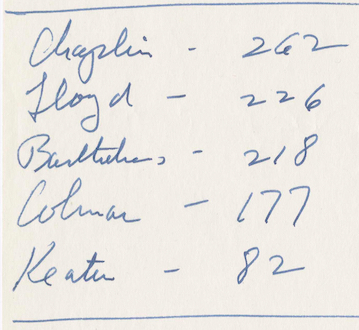 Chaplin - 262
Lloyd - 226
Barthelmess - 218
Colman - 177
Keaton - 82